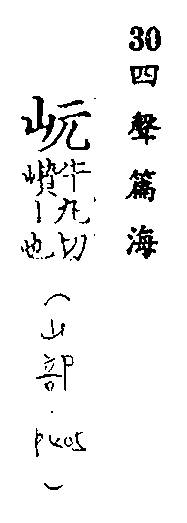 30四聲篇海
岏
牛丸切
巑丨也
(山部.p405)